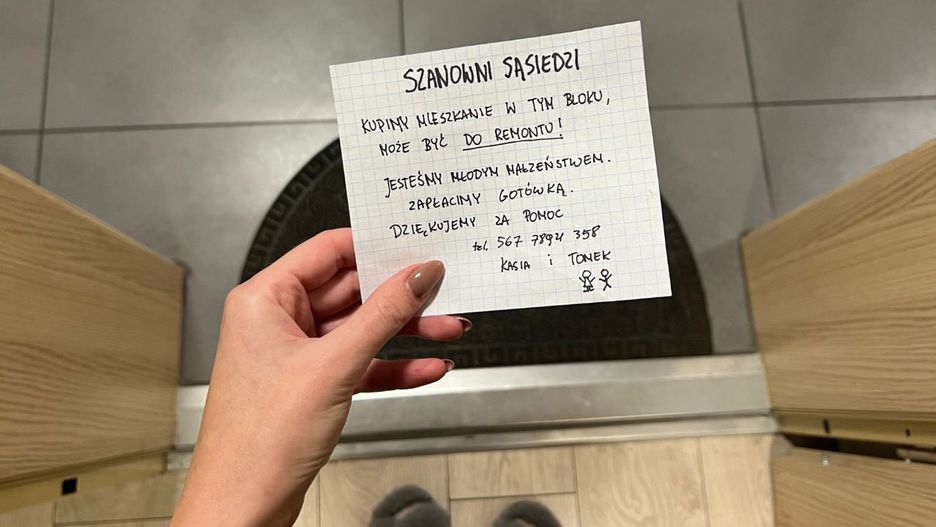 SZANOWNI SĄSIEDZI
KUPIMY MIESZKANIE W TYM BLOKU,
MOŻE BYĆ DO REMONTU!
JESTEŚMY MŁODYM MAŁŻEŃSTWEM.
ZAPŁACIMY GOTÓWKĄ.
DZIĘKUJEMY ZA POMOC
tel. 567 7894 358
KASIA i TONEK